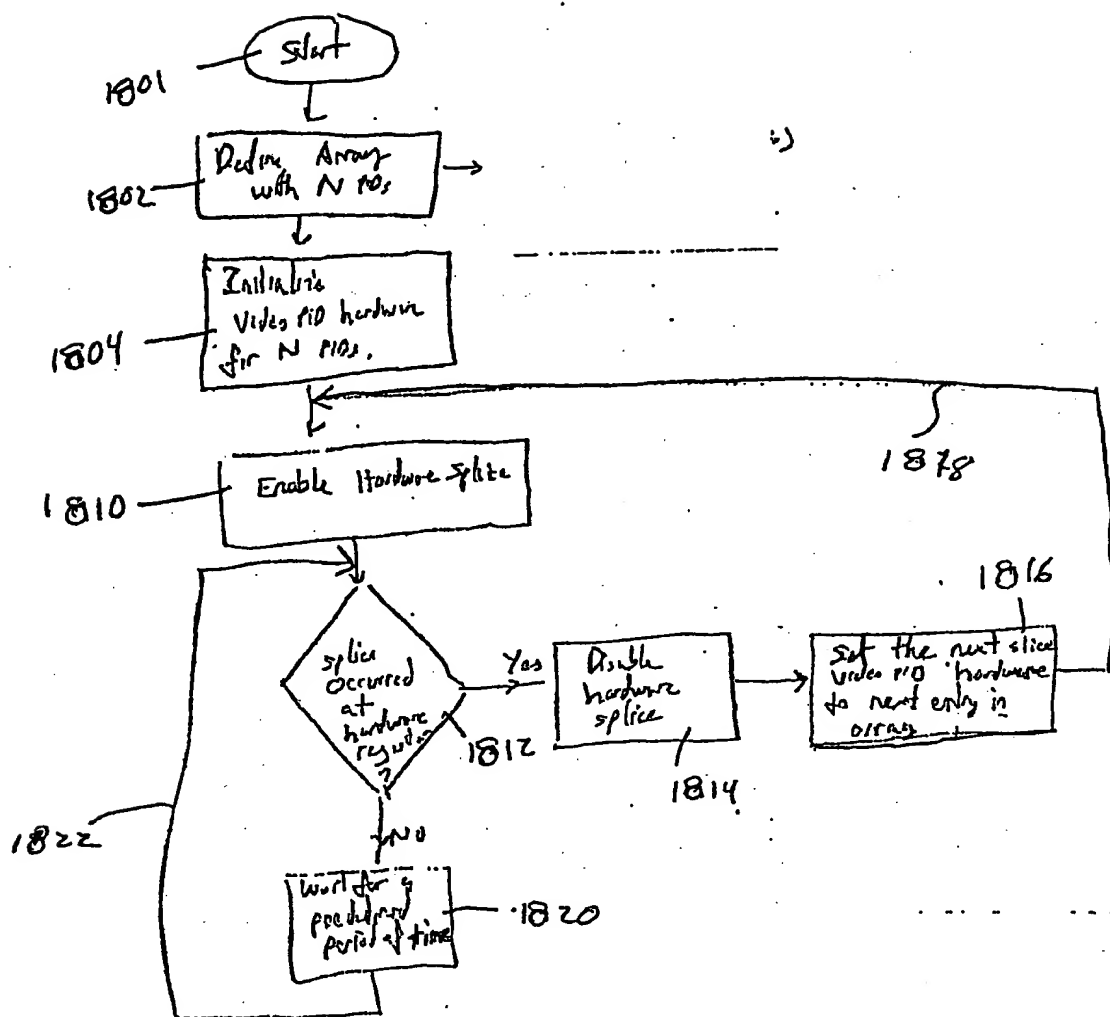 Start
1801
Define Array
with N PIDs
1802
Initialize
Video PID hardware
for N PIDs.
1804
1878
Enable Hardware Splice
1810
1816
splice
occurred
at
hardware
register
?
1812
Yes
Disable
hardware
splice
1814
Set the next slice
video PID hardware
to next entry in
array
1822
NO
Wait for a
predefined
period of time
1820